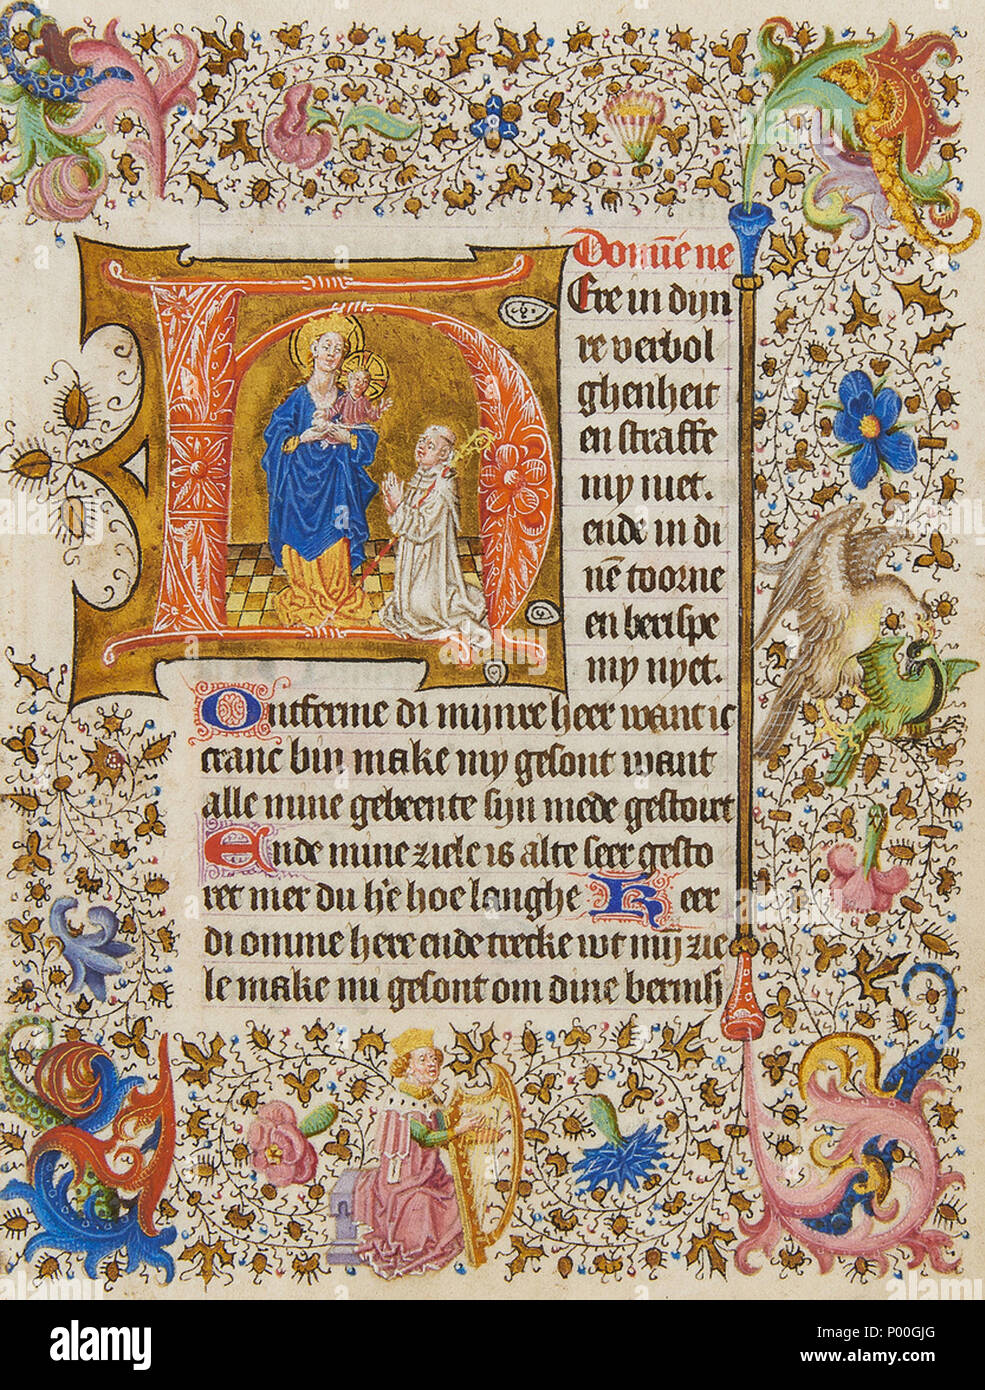 Domine ne
Ere in dijn
re verbol
ghenheit
en straffe
my niet.
ende in di
nē toorne
en berispe
my nyet.
Ontferme di mijnre heer want ic
cranc bin make my gesont want
alle mine gebeente sijn mede gestoert
Ende mine ziele is alte seer gesto
ret mer du he hoe langhe Keer
di omme here ende trecke wt mijn zie
le make mi gesont om dine bermh
alamy
Image ID: P00GJG
www.alamy.com